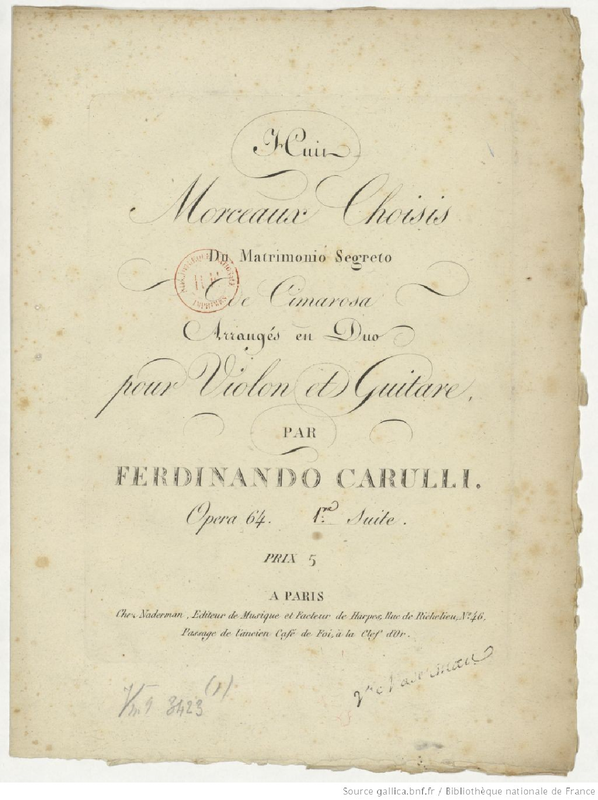 Huit
Morceaux Choisis
Du Matrimonio Segreto
De Cimarosa
Arrangés en Duo
pour Violon et Guitare,
PAR
FERDINANDO CARULLI.
Opera 64. 1.re Suite.
PRIX 5
A PARIS
Chez Naderman, Editeur de Musique et Facteur de Harpes, Rue de Richelieu, No. 46,
Passage de l'ancien Café de Foi, à la Clef d'Or.
Vm9 3423 (1)
Source gallica.bnf.fr / Bibliothèque nationale de France